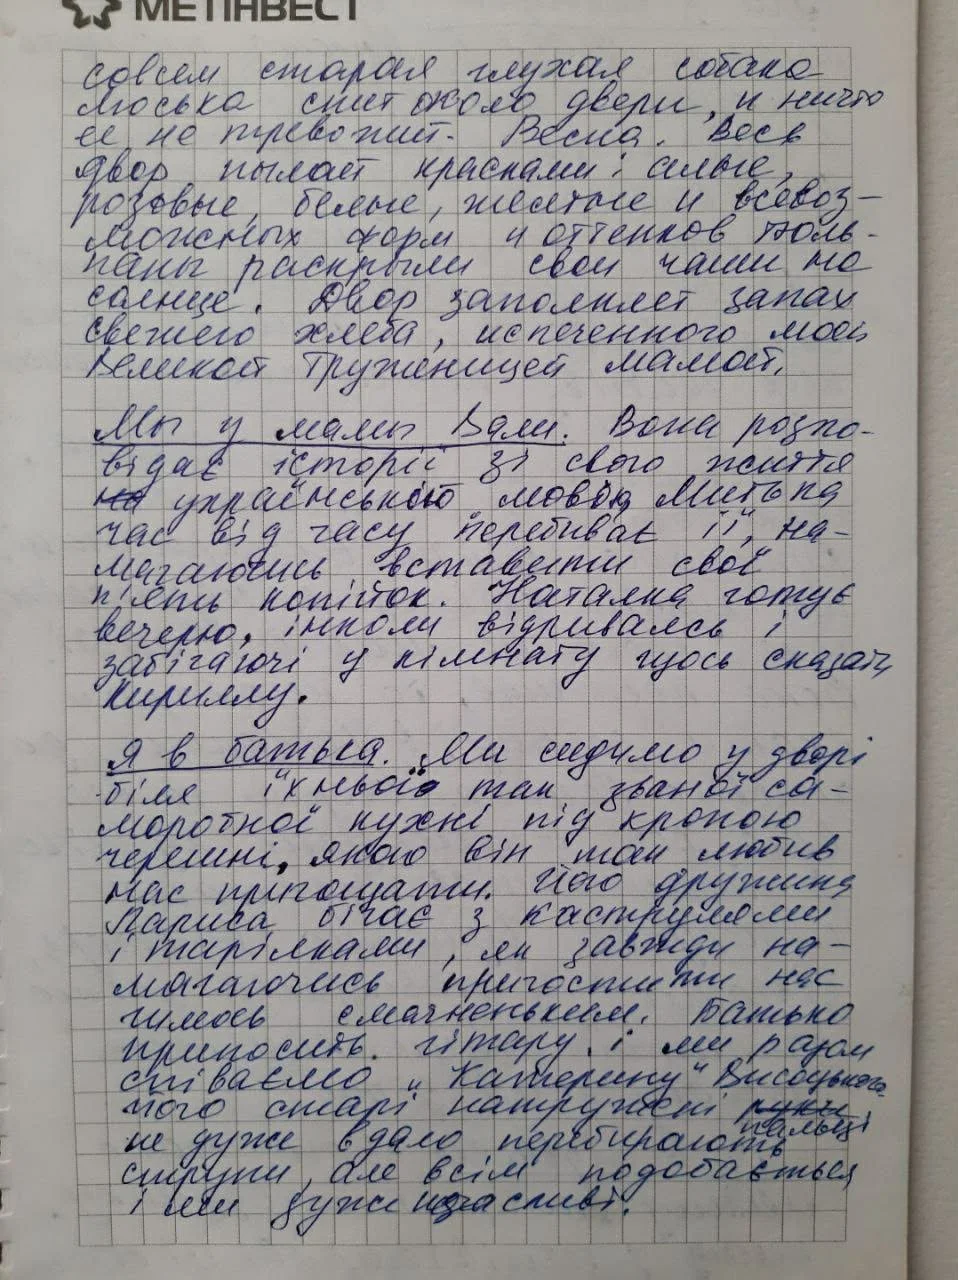 МЕТІНВЕСТ
совсем старая глухая собака
Люська спит около двери, и ничто
ее не тревожит. Весна. Весь
двор пылает красками: алые,
розовые, белые, желтые и всевоз-
можных форм и оттенков тюль-
паны раскрыли свои чаши на
солнце. Двор заполняет запах
свежего хлеба, испеченного моей
Великой Труженицей мамой.
Мы у мамы Вали. Вона розпо-
відає історії зі свого життя
на українською мовою, Митька
час від часу перебиває її, на-
магаючись вставити свої
п'ять копійок. Наталка готує
вечерю, інколи відриваясь і
забігаючі у кімнату щось сказать
Кириллу.
Я в батька. Ми сидимо у дворі
біля їхньої так званої са-
моробної кухні під кроною
черешні, якою він так любив
нас пригощати. Його дружина
Лариса бігає з каструлями
і тарілками, як завжди на-
магаючись пригостити нас
чимось смачненьким. Батько
приносить гітару і ми разом
співаємо „Катерину" Висоцького
Його старі натружені руки пальці
не дуже вдало перебирають
струни, але всім подобається
і ми дуже щасливі.